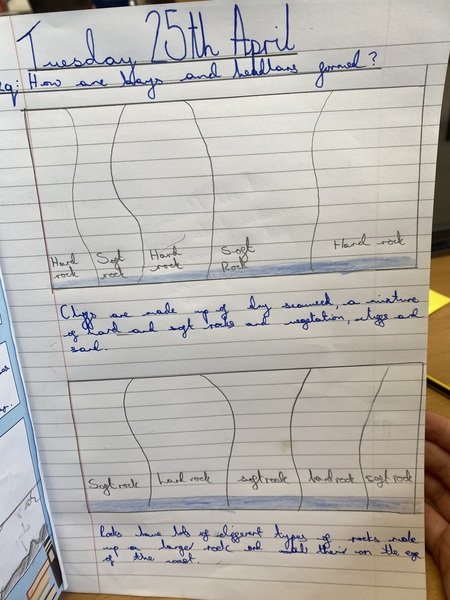 Tuesday 25th April
Eq: How are bays and headlans formed?
Hard rock
Soft rock
Hard rock
Soft Rock
Hard rock
Cliffs are made up of dry seaweed, a mixture
of hard and soft rocks and vegetation, and
sand.
Soft rock
hard rock
soft rock
hard rock
soft rock
Rocks have lots of different types of rocks made
up a larger rock and on the
of the coast.